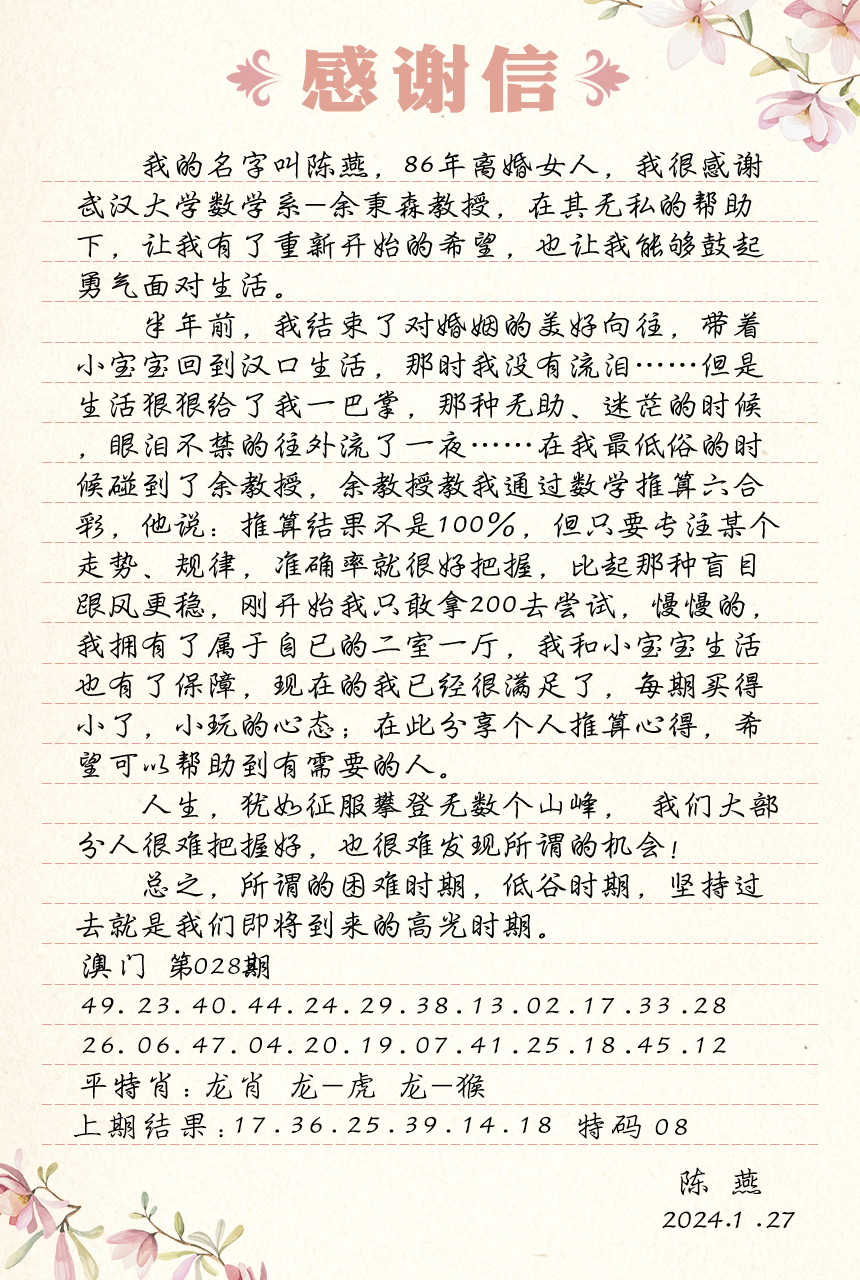 感谢信
我的名字叫陈燕，86年离婚女人，我很感谢
武汉大学数学系—余秉森教授，在其无私的帮助
下，让我有了重新开始的希望，也让我能够鼓起
勇气面对生活。
半年前，我结束了对婚姻的美好向往，带着
小宝宝回到汉口生活，那时我没有流泪……但是
生活狠狠给了我一巴掌，那种无助、迷茫的时候
，眼泪不禁的往外流了一夜……在我最低俗的时
候碰到了余教授，余教授教我通过数学推算六合
彩，他说：推算结果不是100%，但只要专注某个
走势、规律，准确率就很好把握，比起那种盲目
跟风更稳，刚开始我只敢拿200去尝试，慢慢的，
我拥有了属于自已的二室一厅，我和小宝宝生活
也有了保障，现在的我已经很满足了，每期买得
小了，小玩的心态；在此分享个人推算心得，希
望可以帮助到有需要的人。
人生，犹如征服攀登无数个山峰， 我们大部
分人很难把握好，也很难发现所谓的机会！
总之，所谓的困难时期，低谷时期，坚持过
去就是我们即将到来的高光时期。
澳门 第028期
49.23.40.44.24.29.38.13.02.17.33.28
26.06.47.04.20.19.07.41.25.18.45.12
平特肖：龙肖 龙—虎 龙—猴
上期结果：17.36.25.39.14.18 特码 08
陈 燕
2024.1.27